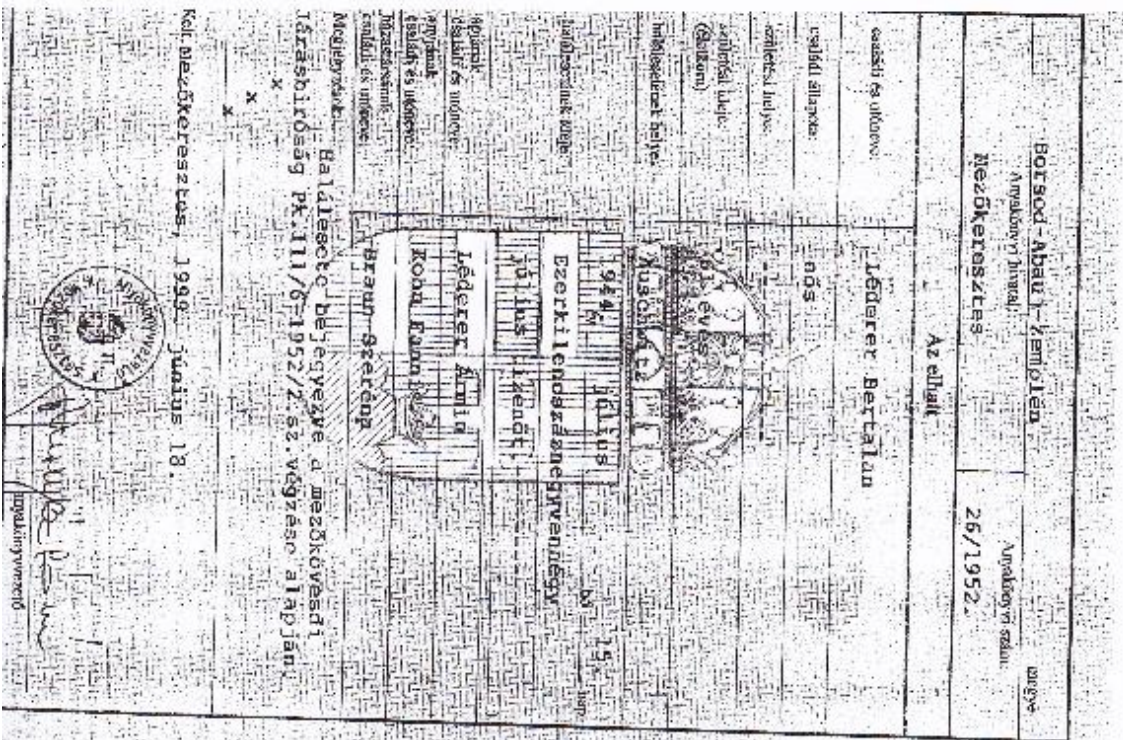 Borsod-Abauj-Zemplén megye
Anyakönyvi hivatal: Anyakönyvi szám:
Mezőkeresztes 26/1952.
Az elhalt
családi és utóneve: Léderer Bertalan
családi állapota: nős
születési helye:
születési ideje: éves
(életkora)
halálesetének helye: Auschwitz
halálesetének ideje: 1944. július hó 15. nap
Ezerkilencszáznegyvennégy
július tizenöt.
apjának
családi és utóneve: Léderer Ármin
anyjának
családi és utóneve: Kohn Fanni
házastársának
családi és utóneve: Braun Szeréna
Megjegyzések: Halálesete bejegyezve a mezőkövesdi
járásbíróság Pk.111/6-1952/2.sz.végzése alapján.
x
x
x
Kelt, Mezőkeresztes, 1999. június 18.
ANYAKÖNYVVEZETŐ
anyakönyvvezető